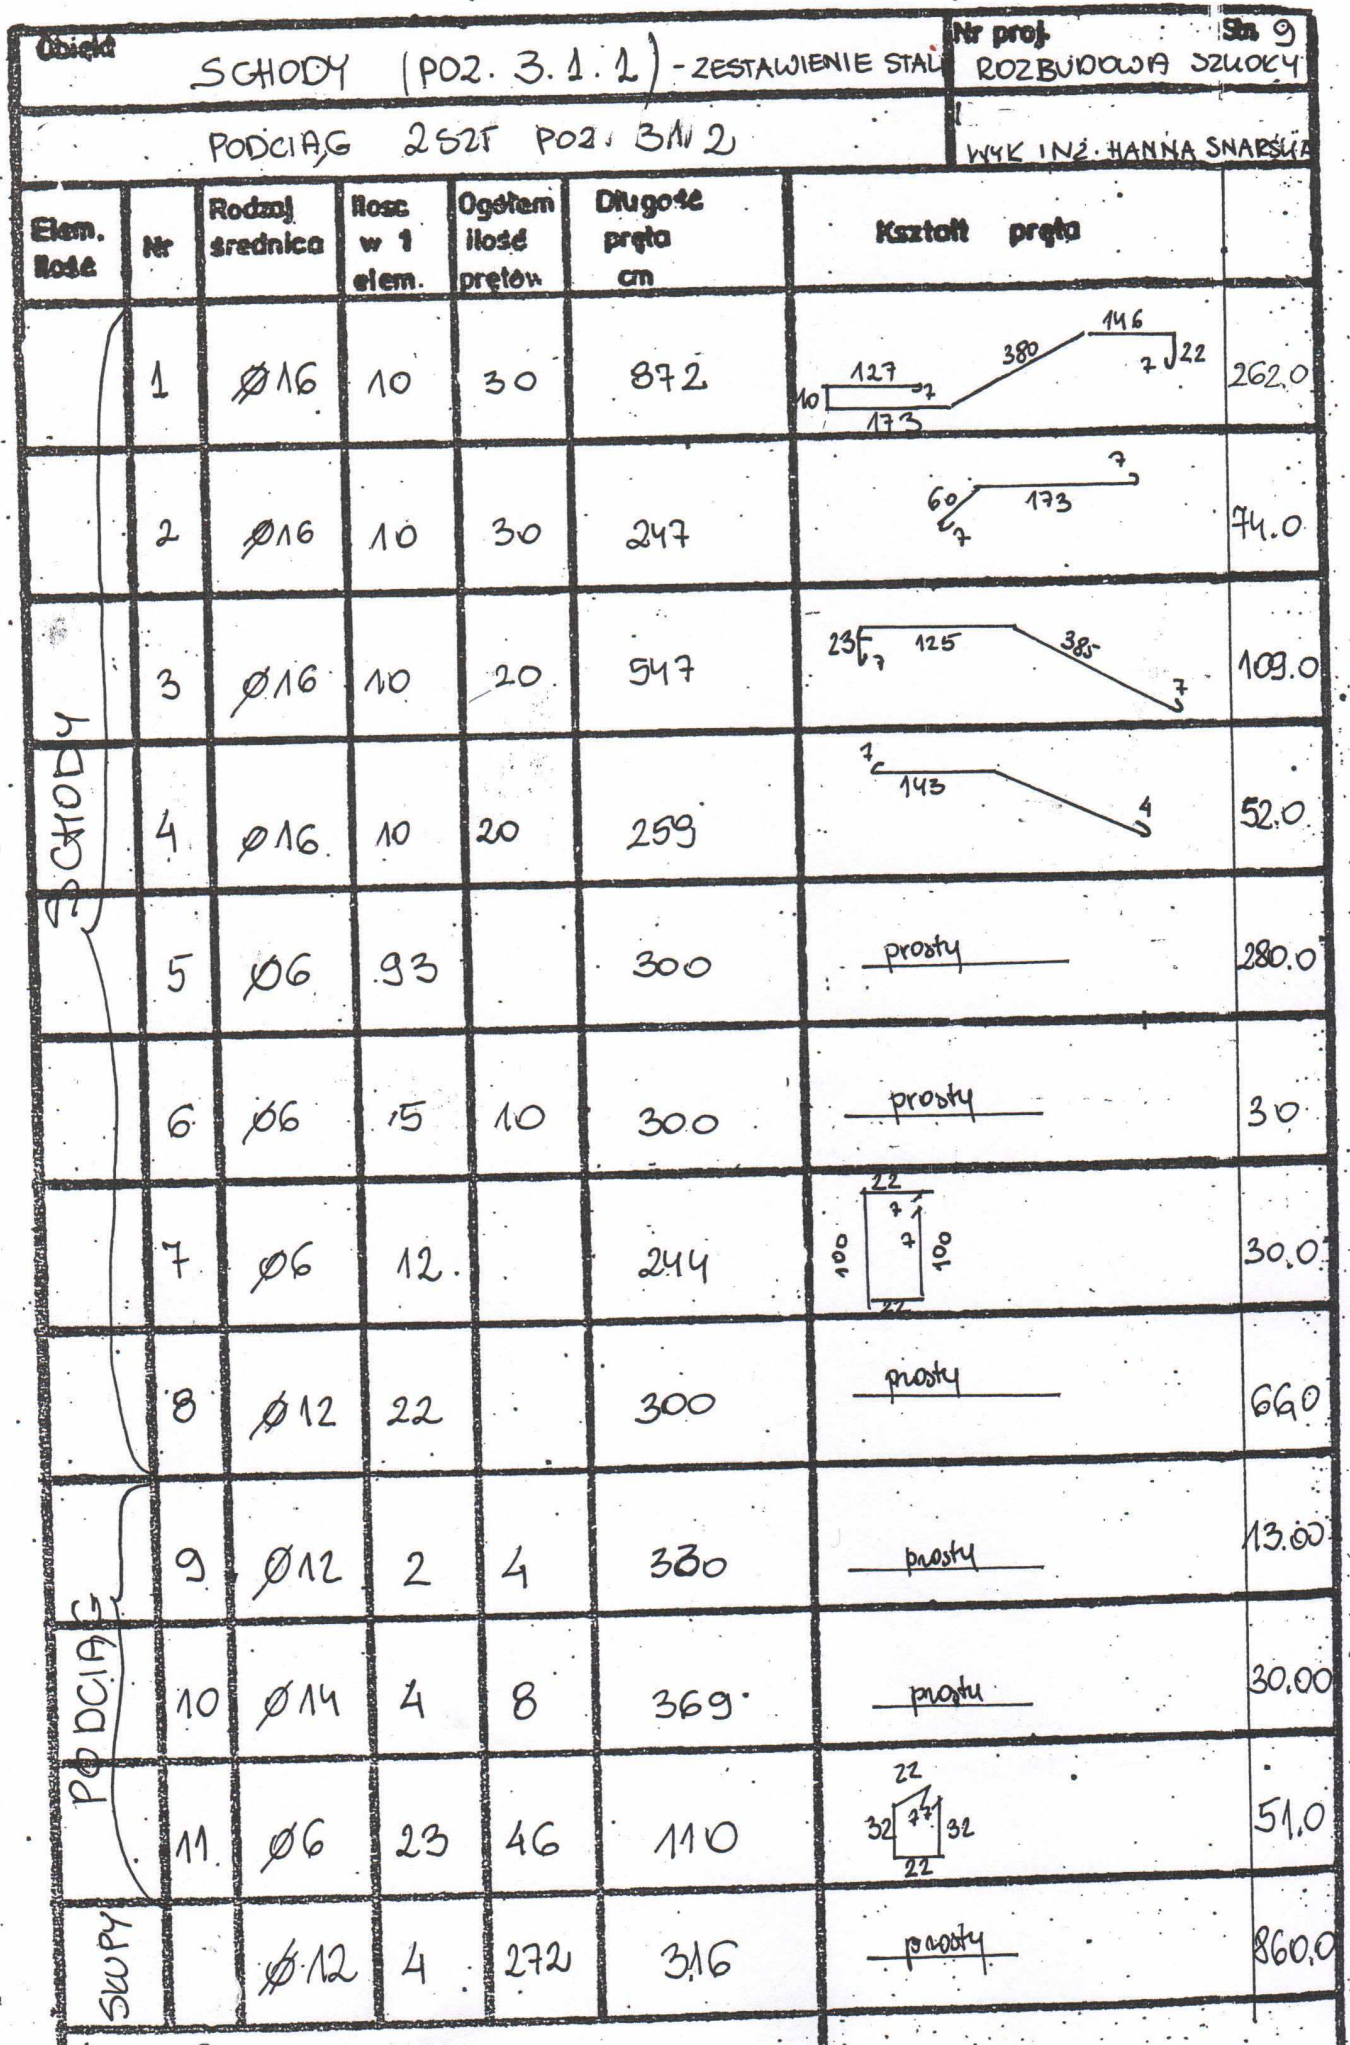 Obiekt SCHODY (POZ. 3.1.1) - ZESTAWIENIE STALI
Nr proj. Str. 9
ROZBUDOWA SZKOŁY
PODCIĄG 2SZT POZ. 3.1.2
WYK INŻ. HANNA SNARSKA
Elem. ilość Nr Rodzaj średnica Ilość w 1 elem. Ogółem ilość prętów Długość pręta cm Kształt pręta
SCHODY
1 Ø16 10 30 872 10 127 7 173 380 146 7 22 262.0
2 Ø16 10 30 247 7 60 173 7 74.0
3 Ø16 10 20 547 23 7 125 385 7 109.0
4 Ø16 10 20 259 7 143 4 52.0
5 Ø6 93 300 prosty 280.0
6 Ø6 15 10 300 prosty 30
7 Ø6 12 244 22 7 7 100 100 22 30.0
8 Ø12 22 300 prosty 66,0
PODCIĄG
9 Ø12 2 4 330 prosty 13.00
10 Ø14 4 8 369 prosty 30.00
11 Ø6 23 46 110 22 32 7 7 32 22 51,0
SŁUPY
Ø12 4 272 316 prosty 860,0